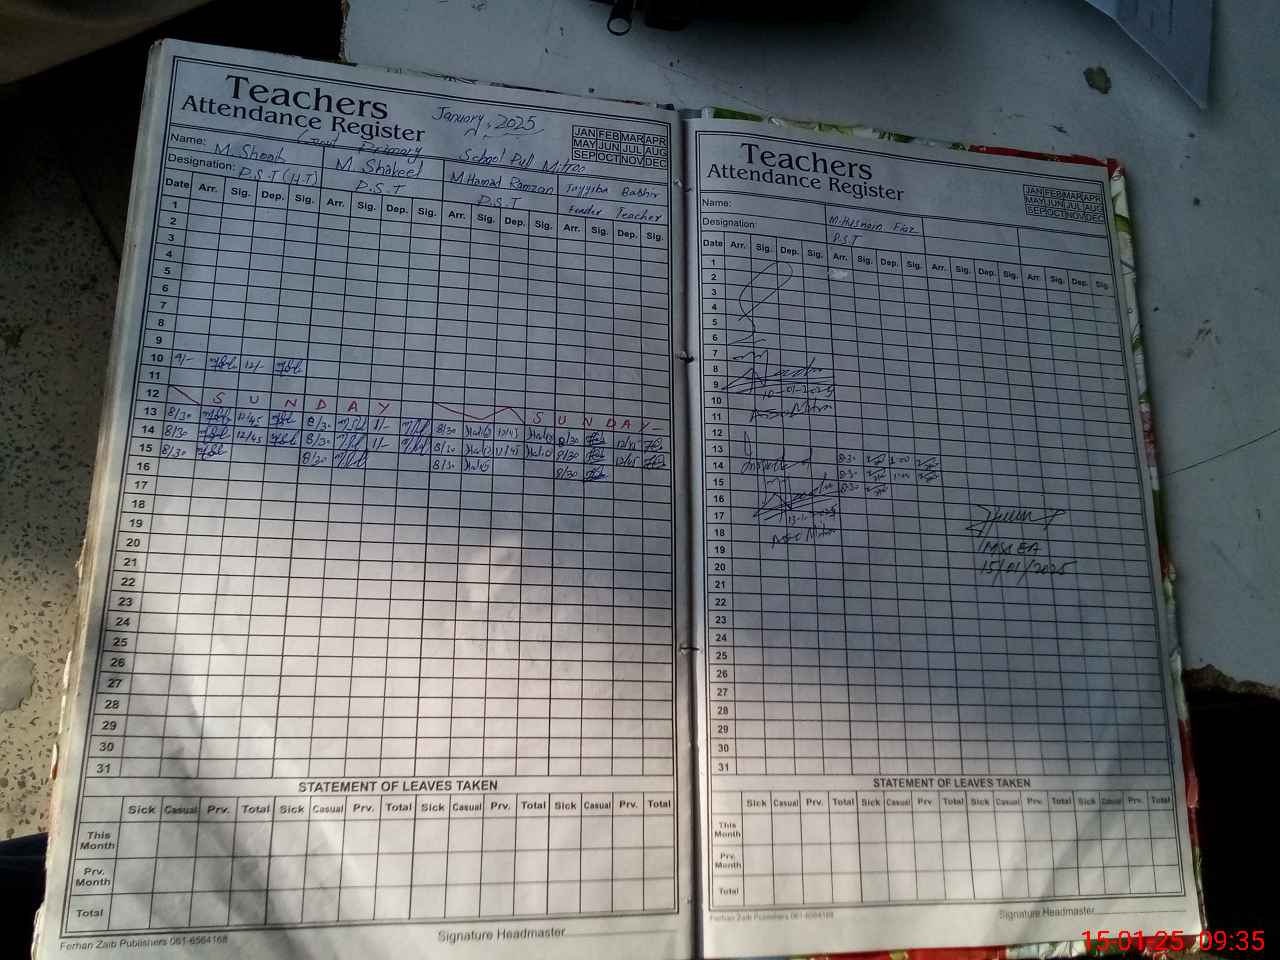 Teachers
Attendance Register
January, 2025
JAN FEB MAR APR
MAY JUN JUL AUG
SEP OCT NOV DEC
Govt Primary School Pull Mitroo
Name: M. Shoaib M. Shakeel M.Hamad Ramzan Tayyiba Bashir
Designation: P.S.T (H.T) P.S.T P.S.T Feeder Teacher
Date Arr. Sig. Dep. Sig. Arr. Sig. Dep. Sig. Arr. Sig. Dep. Sig. Arr. Sig. Dep. Sig.
1
2
3
4
5
6
7
8
9
10 9/- 12/-
11
12 S U N D A Y S U N D A Y
13 8/30 12/45 8/30 1/- 8/30 12/45 8/30 12/45
14 8/30 12/45 8/30 1/- 8/30 12/45 8/30 12/45
15 8/30 8/30 8/30 8/30
16
17
18
19
20
21
22
23
24
25
26
27
28
29
30
31
STATEMENT OF LEAVES TAKEN
Sick Casual Prv. Total Sick Casual Prv. Total Sick Casual Prv. Total Sick Casual Prv. Total
This Month
Prv. Month
Total
Ferhan Zaib Publishers 061-6564168
Signature Headmaster
Teachers
Attendance Register
JAN FEB MAR APR
MAY JUN JUL AUG
SEP OCT NOV DEC
Name: M.Husnain Fiaz
Designation: P.S.T
Date Arr. Sig. Dep. Sig. Arr. Sig. Dep. Sig. Arr. Sig. Dep. Sig. Arr. Sig. Dep. Sig.
1
2
3
4
5
6
7
8
9 10-01-2025
10
11
12
13
14 8:30 1:00
15 8:30 1:00
16 8:30
17
18
19
20
21
22
23
24
25
26
27
28
29
30
31
MEA
15/01/2025
STATEMENT OF LEAVES TAKEN
Sick Casual Prv. Total Sick Casual Prv. Total Sick Casual Prv. Total Sick Casual Prv. Total
This Month
Prv. Month
Total
Ferhan Zaib Publishers 061-6564168
Signature Headmaster
15-01-25 09:35